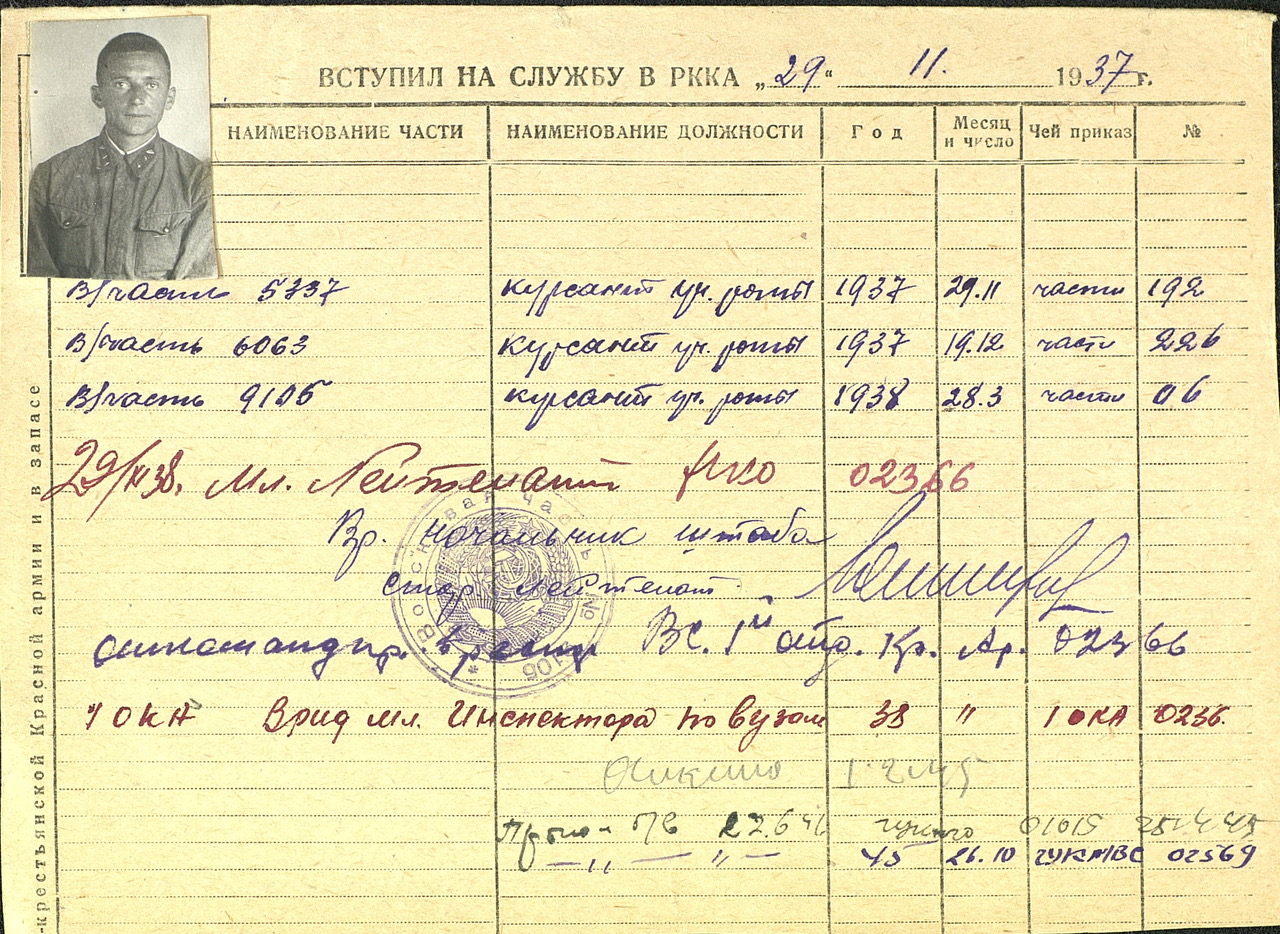 ВСТУПИЛ НА СЛУЖБУ В РККА „29“ 11. 1937 г.
НАИМЕНОВАНИЕ ЧАСТИ НАИМЕНОВАНИЕ ДОЛЖНОСТИ Год Месяц и число Чей приказ №
В/часть 5737 курсант уч. роты 1937 29.11 части 192
В/часть 6063 курсант уч. роты 1937 19.12 части 226
В/часть 9106 курсант уч. роты 1938 28.3 части 06
Мл. Лейтенант НКО 02366
Вр. начальник штаба
Стар. лейтенант
Воен часть № 9106
откомандир. в распор. ВС. 1й отд. Кр. Ар. 02366
1 ОКА Врид мл. Инспектора по вузам 38 " 1 ОКА 0236.
22.6.46 01015
— " — " — 45 26.10 ГУКМВС 02569
-крестьянской Красной армии и в запасе